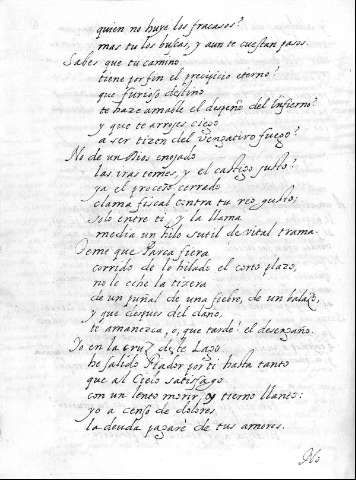 quien no huye los fracasos?
mas tu los buscas, y aun te cuestan pasos.
Sabes que tu camino,
tiene por fin el precipicio eterno?
que furioso destino
te haze amable el despeño del Infierno?
y que te arrojes ciego
a ser tizon del vengativo fuego?
No de un Dios enojado
las iras temes, y el castigo justo?
ya el proceso cerrado
clama fiscal contra tu reo gusto;
solo entre ti, y la llama
media un hilo sutil de vital trama.
Teme que Parca fiera
corrido de lo hilado el corto plazo,
no le eche la tixera
de un puñal de una fiebre, de un balazo,
y que despues del daño,
te amanezca, o, que tarde! el desengaño.
Yo en la cruz de te Lazo
he salido Fiador por ti hasta tanto
que al Cielo satisfago
con un lento morir, y tierno llanto:
yo a censo de dolores
la deuda pagarè de tus amores.
No